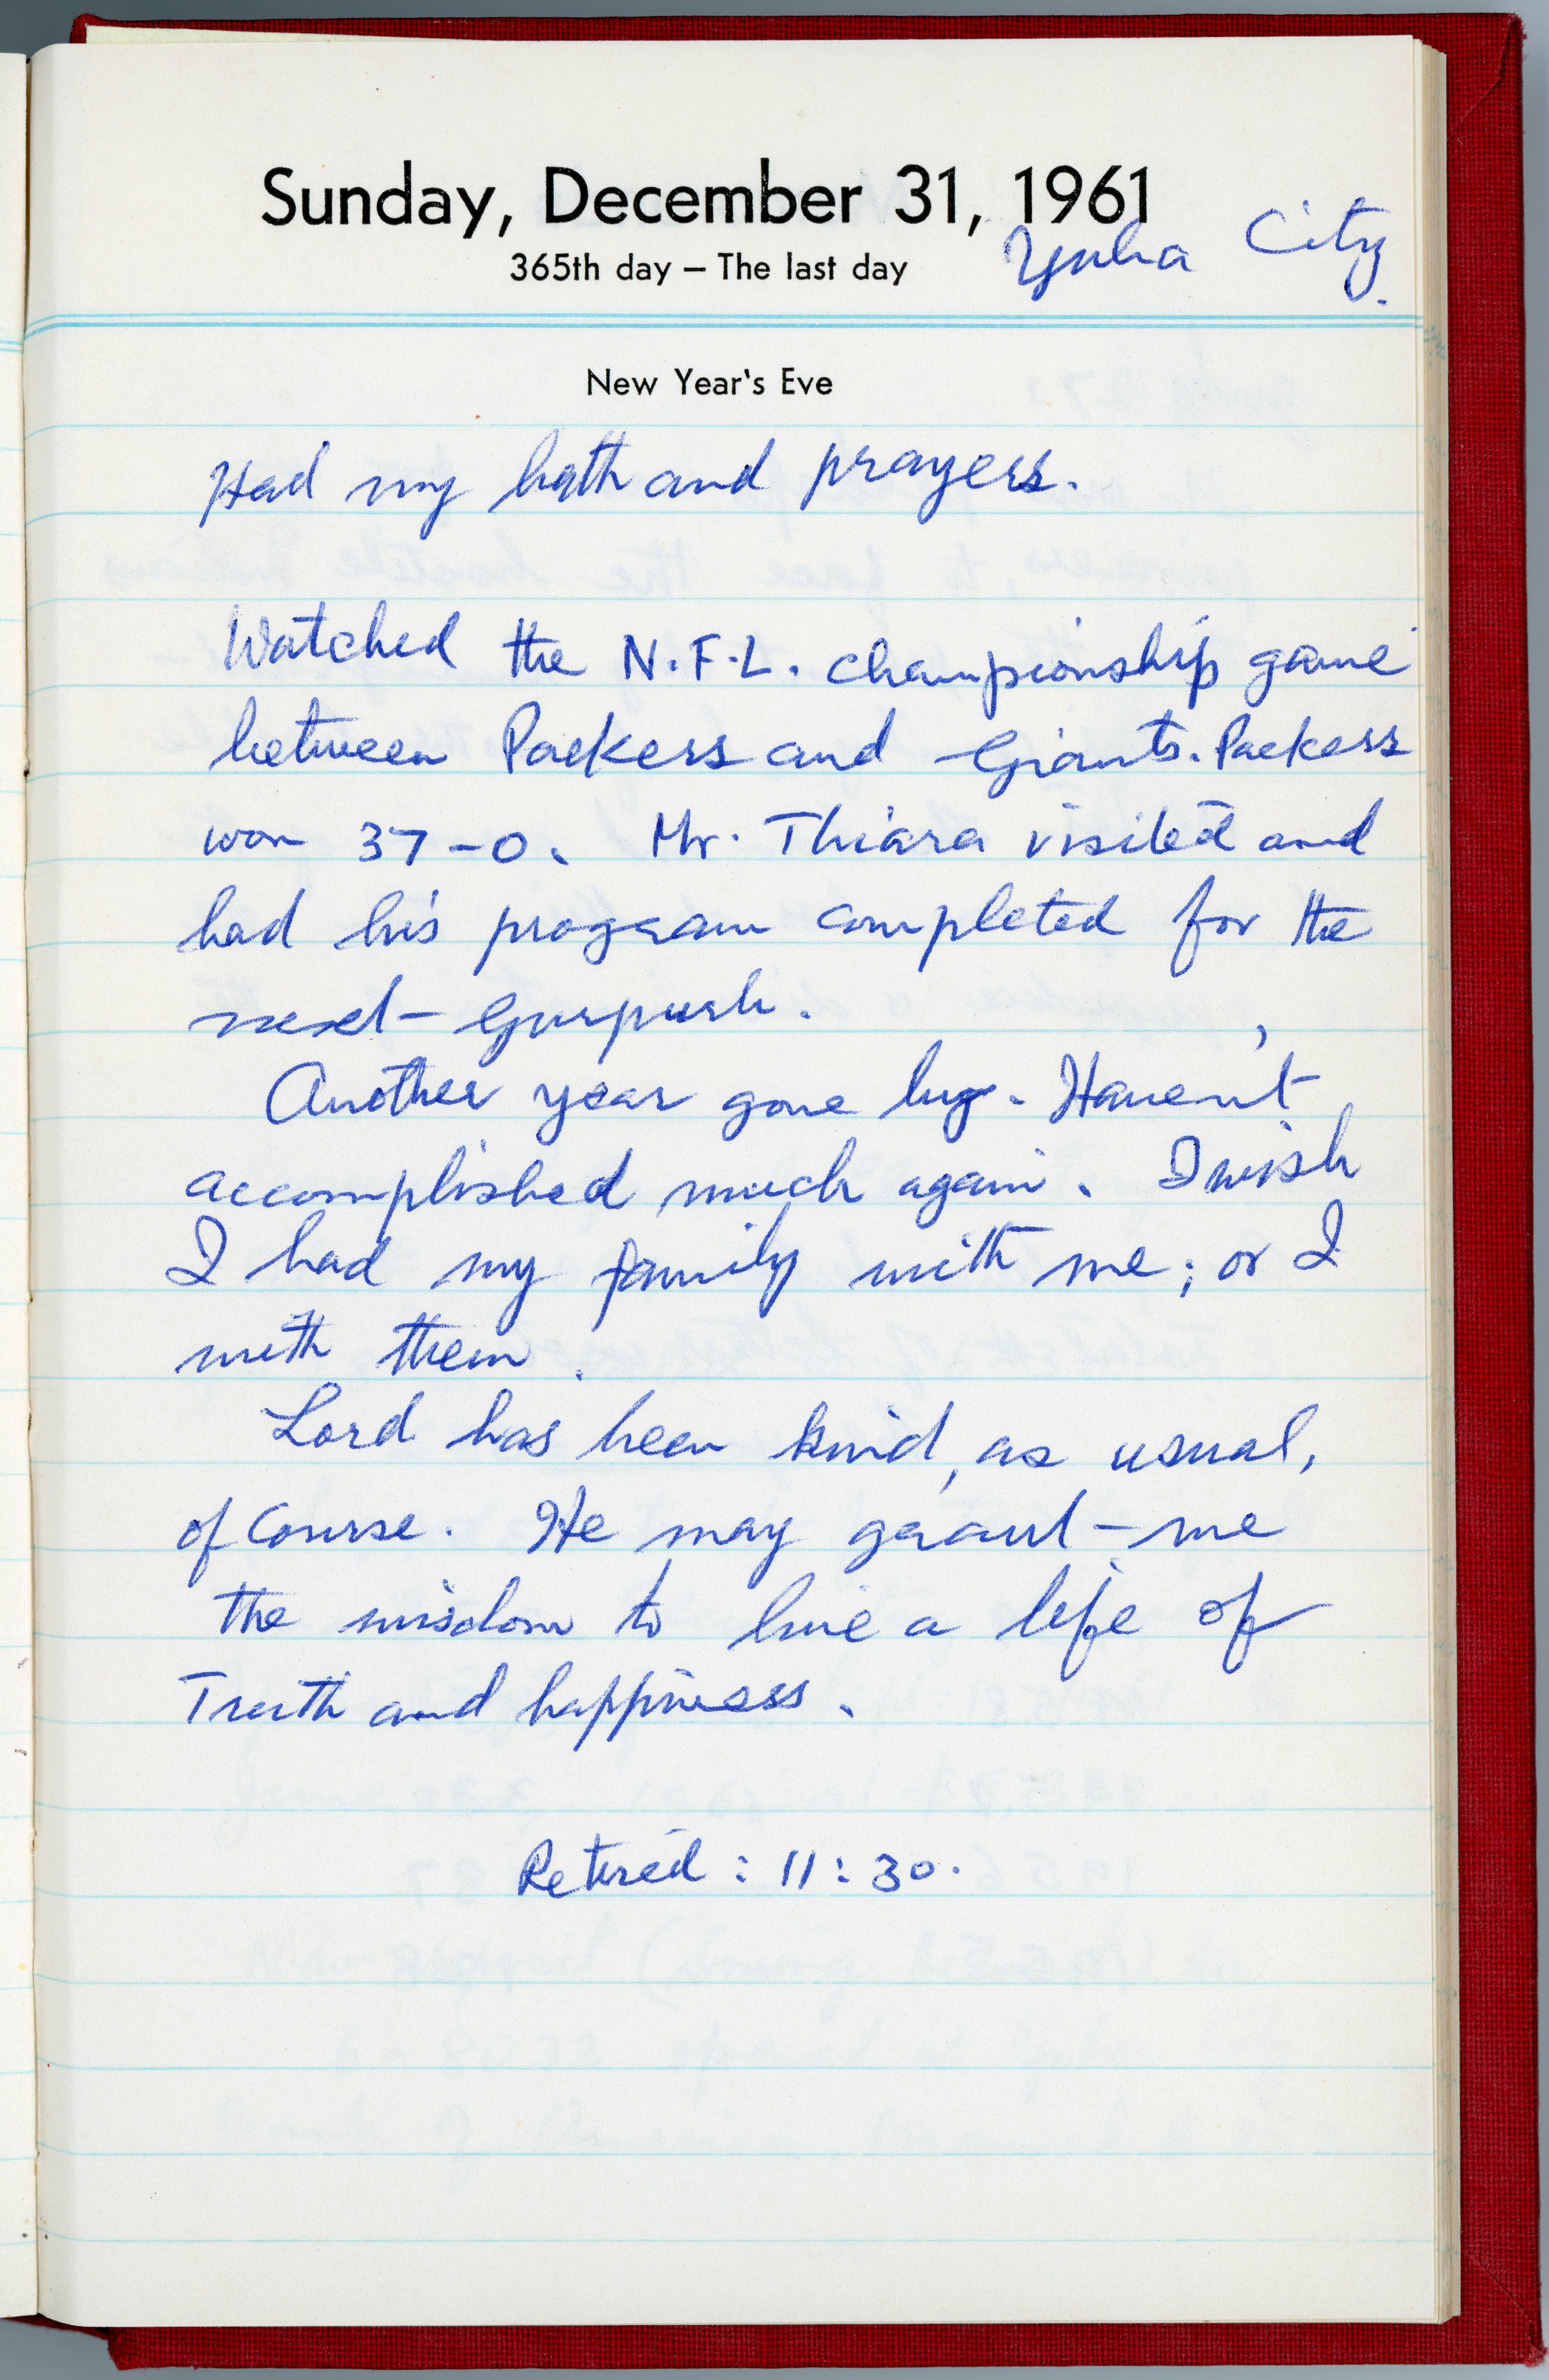 Sunday, December 31, 1961
365th day – The last day
Yuba City.
New Year's Eve
Had my bath and prayers.
Watched the N.F.L. championship game
between Packers and Giants. Packers
won 37-0. Mr. Thiara visited and
had his program completed for the
next Gurpurb.
Another year gone by. Haven't
accomplished much again. I wish
I had my family with me; or I
with them.
Lord has been kind, as usual,
of course. He may grant me
the wisdom to live a life of
Truth and happiness.
Retired : 11:30.